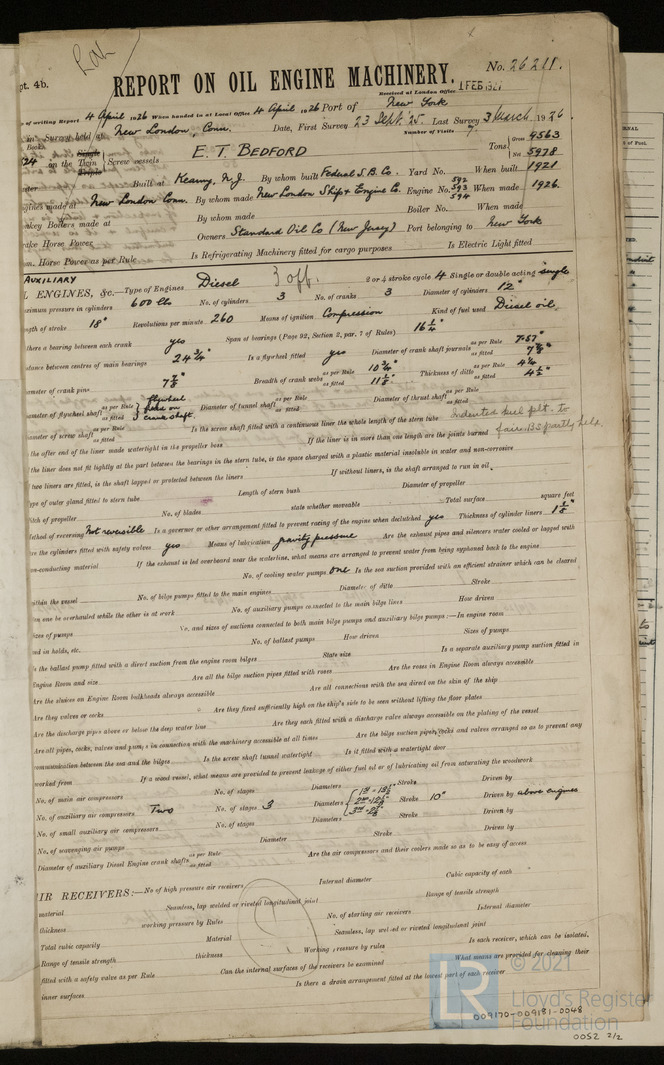 pt. 4b.
REPORT ON OIL ENGINE MACHINERY.
No. 26211.
Received at London Office
1 FEB 1927
of writing Report 4 April 1926 When handed in at Local Office 4 April 1926 Port of New York
in Survey held at New London, Conn. Date, First Survey 23 Sept. '25. Last Survey 3 March 1926
Book.
Number of Visits 7
24 on the Single Twin Triple Screw vessels E. T. BEDFORD Tons Gross 9563 Net 5978
Built at Kearny, N.J. By whom built Federal S.B. Co. Yard No. When built 1921
ngines made at New London Conn. By whom made New London Ship & Engine Co. Engine No. 592 593 594 When made 1926.
nkey Boilers made at By whom made Boiler No. When made
rake Horse Power Owners Standard Oil Co (New Jersey) Port belonging to New York
m. Horse Power as per Rule Is Refrigerating Machinery fitted for cargo purposes Is Electric Light fitted
AUXILIARY
L ENGINES, &c.—Type of Engines Diesel 3 off. 2 or 4 stroke cycle 4 Single or double acting single
ximum pressure in cylinders 600 lbs No. of cylinders 3 No. of cranks 3 Diameter of cylinders 12"
ngth of stroke 18" Revolutions per minute 260 Means of ignition Compression Kind of fuel used Diesel oil
there a bearing between each crank yes Span of bearings (Page 92, Section 2, par. 7 of Rules) 16 1/4"
stance between centres of main bearings 24 3/4" Is a flywheel fitted yes Diameter of crank shaft journals as per Rule 7.57" as fitted 7 7/8"
ameter of crank pins 7 7/8" Breadth of crank webs as per Rule 10 3/4" as fitted 11 1/2" Thickness of ditto as per Rule 4 1/4" as fitted 4 1/2"
ameter of flywheel shaft as per Rule as fitted flywheel keyed on crank shaft. Diameter of tunnel shaft as per Rule as fitted Diameter of thrust shaft as per Rule as fitted
ameter of screw shaft as per Rule as fitted Is the screw shaft fitted with a continuous liner the whole length of the stern tube
Indented keel plt. to
the after end of the liner made watertight in the propeller boss If the liner is in more than one length are the joints burned
fair. BS partly held
the liner does not fit tightly at the part between the bearings in the stern tube, is the space charged with a plastic material insoluble in water and non-corrosive
two liners are fitted, is the shaft lapped or protected between the liners If without liners, is the shaft arranged to run in oil
ype of outer gland fitted to stern tube Length of stern bush Diameter of propeller
itch of propeller No. of blades state whether moveable Total surface square feet
ethod of reversing Not reversible Is a governor or other arrangement fitted to prevent racing of the engine when declutched yes Thickness of cylinder liners 1 1/8"
re the cylinders fitted with safety valves yes Means of lubrication gravity pressure Are the exhaust pipes and silencers water cooled or lagged with
on-conducting material If the exhaust is led overboard near the waterline, what means are arranged to prevent water from being syphoned back to the engine
No. of cooling water pumps One Is the sea suction provided with an efficient strainer which can be cleared
within the vessel No. of bilge pumps fitted to the main engines Diameter of ditto Stroke
an one be overhauled while the other is at work No. of auxiliary pumps connected to the main bilge lines How driven
Sizes of pumps No. and sizes of suctions connected to both main bilge pumps and auxiliary bilge pumps:—In engine room
nd in holds, etc. No. of ballast pumps How driven Sizes of pumps
s the ballast pump fitted with a direct suction from the engine room bilges State size Is a separate auxiliary pump suction fitted in
Engine Room and size Are all the bilge suction pipes fitted with roses Are the roses in Engine Room always accessible
Are the sluices on Engine Room bulkheads always accessible Are all connections with the sea direct on the skin of the ship
Are they valves or cocks Are they fixed sufficiently high on the ship's side to be seen without lifting the floor plates
Are the discharge pipes above or below the deep water line Are they each fitted with a discharge valve always accessible on the plating of the vessel
Are all pipes, cocks, valves and pumps in connection with the machinery accessible at all times Are the bilge suction pipes, cocks and valves arranged so as to prevent any
communication between the sea and the bilges Is the screw shaft tunnel watertight Is it fitted with a watertight door
worked from If a wood vessel, what means are provided to prevent leakage of either fuel oil or of lubricating oil from saturating the woodwork
No. of main air compressors No. of stages Diameters Stroke Driven by
No. of auxiliary air compressors Two No. of stages 3 Diameters Stroke 10" Driven by above engines
No. of small auxiliary air compressors No. of stages Diameters Stroke Driven by
No. of scavenging air pumps Diameter Stroke Driven by
Diameter of auxiliary Diesel Engine crank shafts as per Rule as fitted Are the air compressors and their coolers made so as to be easy of access
IR RECEIVERS:—No of high pressure air receivers Internal diameter Cubic capacity of each
material Seamless, lap welded or riveted longitudinal joint Range of tensile strength
thickness working pressure by Rules No. of starting air receivers Internal diameter
Total cubic capacity Material Seamless, lap welded or riveted longitudinal joint
Range of tensile strength thickness Working pressure by rules Is each receiver, which can be isolated,
fitted with a safety valve as per Rule Can the internal surfaces of the receivers be examined What means are provided for cleaning their
inner surfaces Is there a drain arrangement fitted at the lowest part of each receiver
© 2021
LR
Lloyd's Register
Foundation
009170-009181-0048
0052 2/2